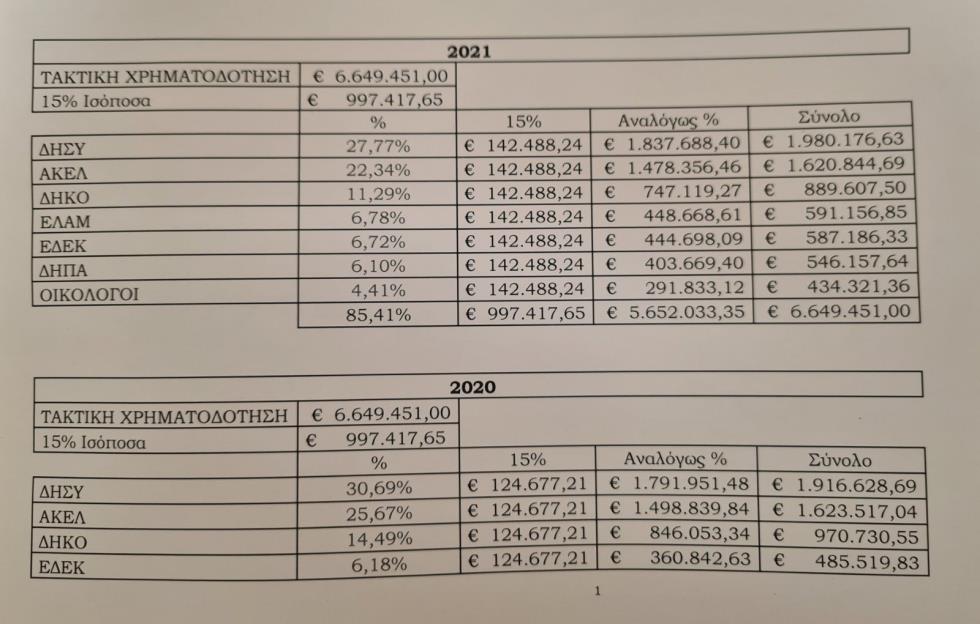 2021
ΤΑΚΤΙΚΗ ΧΡΗΜΑΤΟΔΟΤΗΣΗ € 6.649.451,00
15% Ισόποσα € 997.417,65
% 15% Αναλόγως % Σύνολο
ΔΗΣΥ 27,77% € 142.488,24 € 1.837.688,40 € 1.980.176,63
ΑΚΕΛ 22,34% € 142.488,24 € 1.478.356,46 € 1.620.844,69
ΔΗΚΟ 11,29% € 142.488,24 € 747.119,27 € 889.607,50
ΕΛΑΜ 6,78% € 142.488,24 € 448.668,61 € 591.156,85
ΕΔΕΚ 6,72% € 142.488,24 € 444.698,09 € 587.186,33
ΔΗΠΑ 6,10% € 142.488,24 € 403.669,40 € 546.157,64
ΟΙΚΟΛΟΓΟΙ 4,41% € 142.488,24 € 291.833,12 € 434.321,36
85,41% € 997.417,65 € 5.652.033,35 € 6.649.451,00
2020
ΤΑΚΤΙΚΗ ΧΡΗΜΑΤΟΔΟΤΗΣΗ € 6.649.451,00
15% Ισόποσα € 997.417,65
% 15% Αναλόγως % Σύνολο
ΔΗΣΥ 30,69% € 124.677,21 € 1.791.951,48 € 1.916.628,69
ΑΚΕΛ 25,67% € 124.677,21 € 1.498.839,84 € 1.623.517,04
ΔΗΚΟ 14,49% € 124.677,21 € 846.053,34 € 970.730,55
ΕΔΕΚ 6,18% € 124.677,21 € 360.842,63 € 485.519,83
1